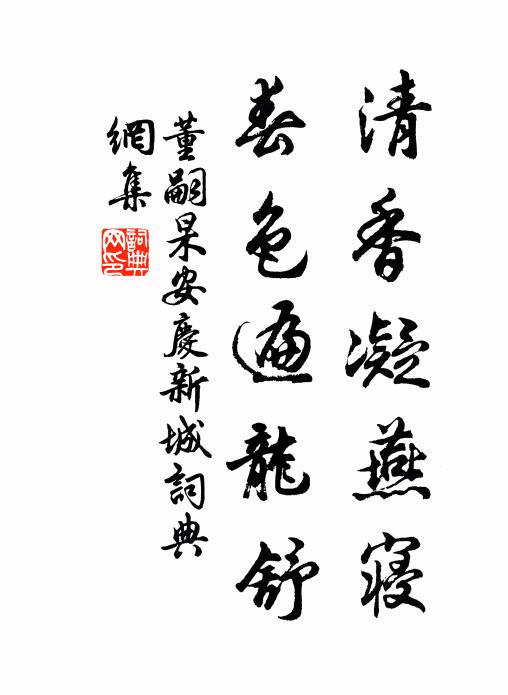 清香凝燕寝
春色遍龍舒
董嗣杲安慶新城詞典
網集
詞典網印